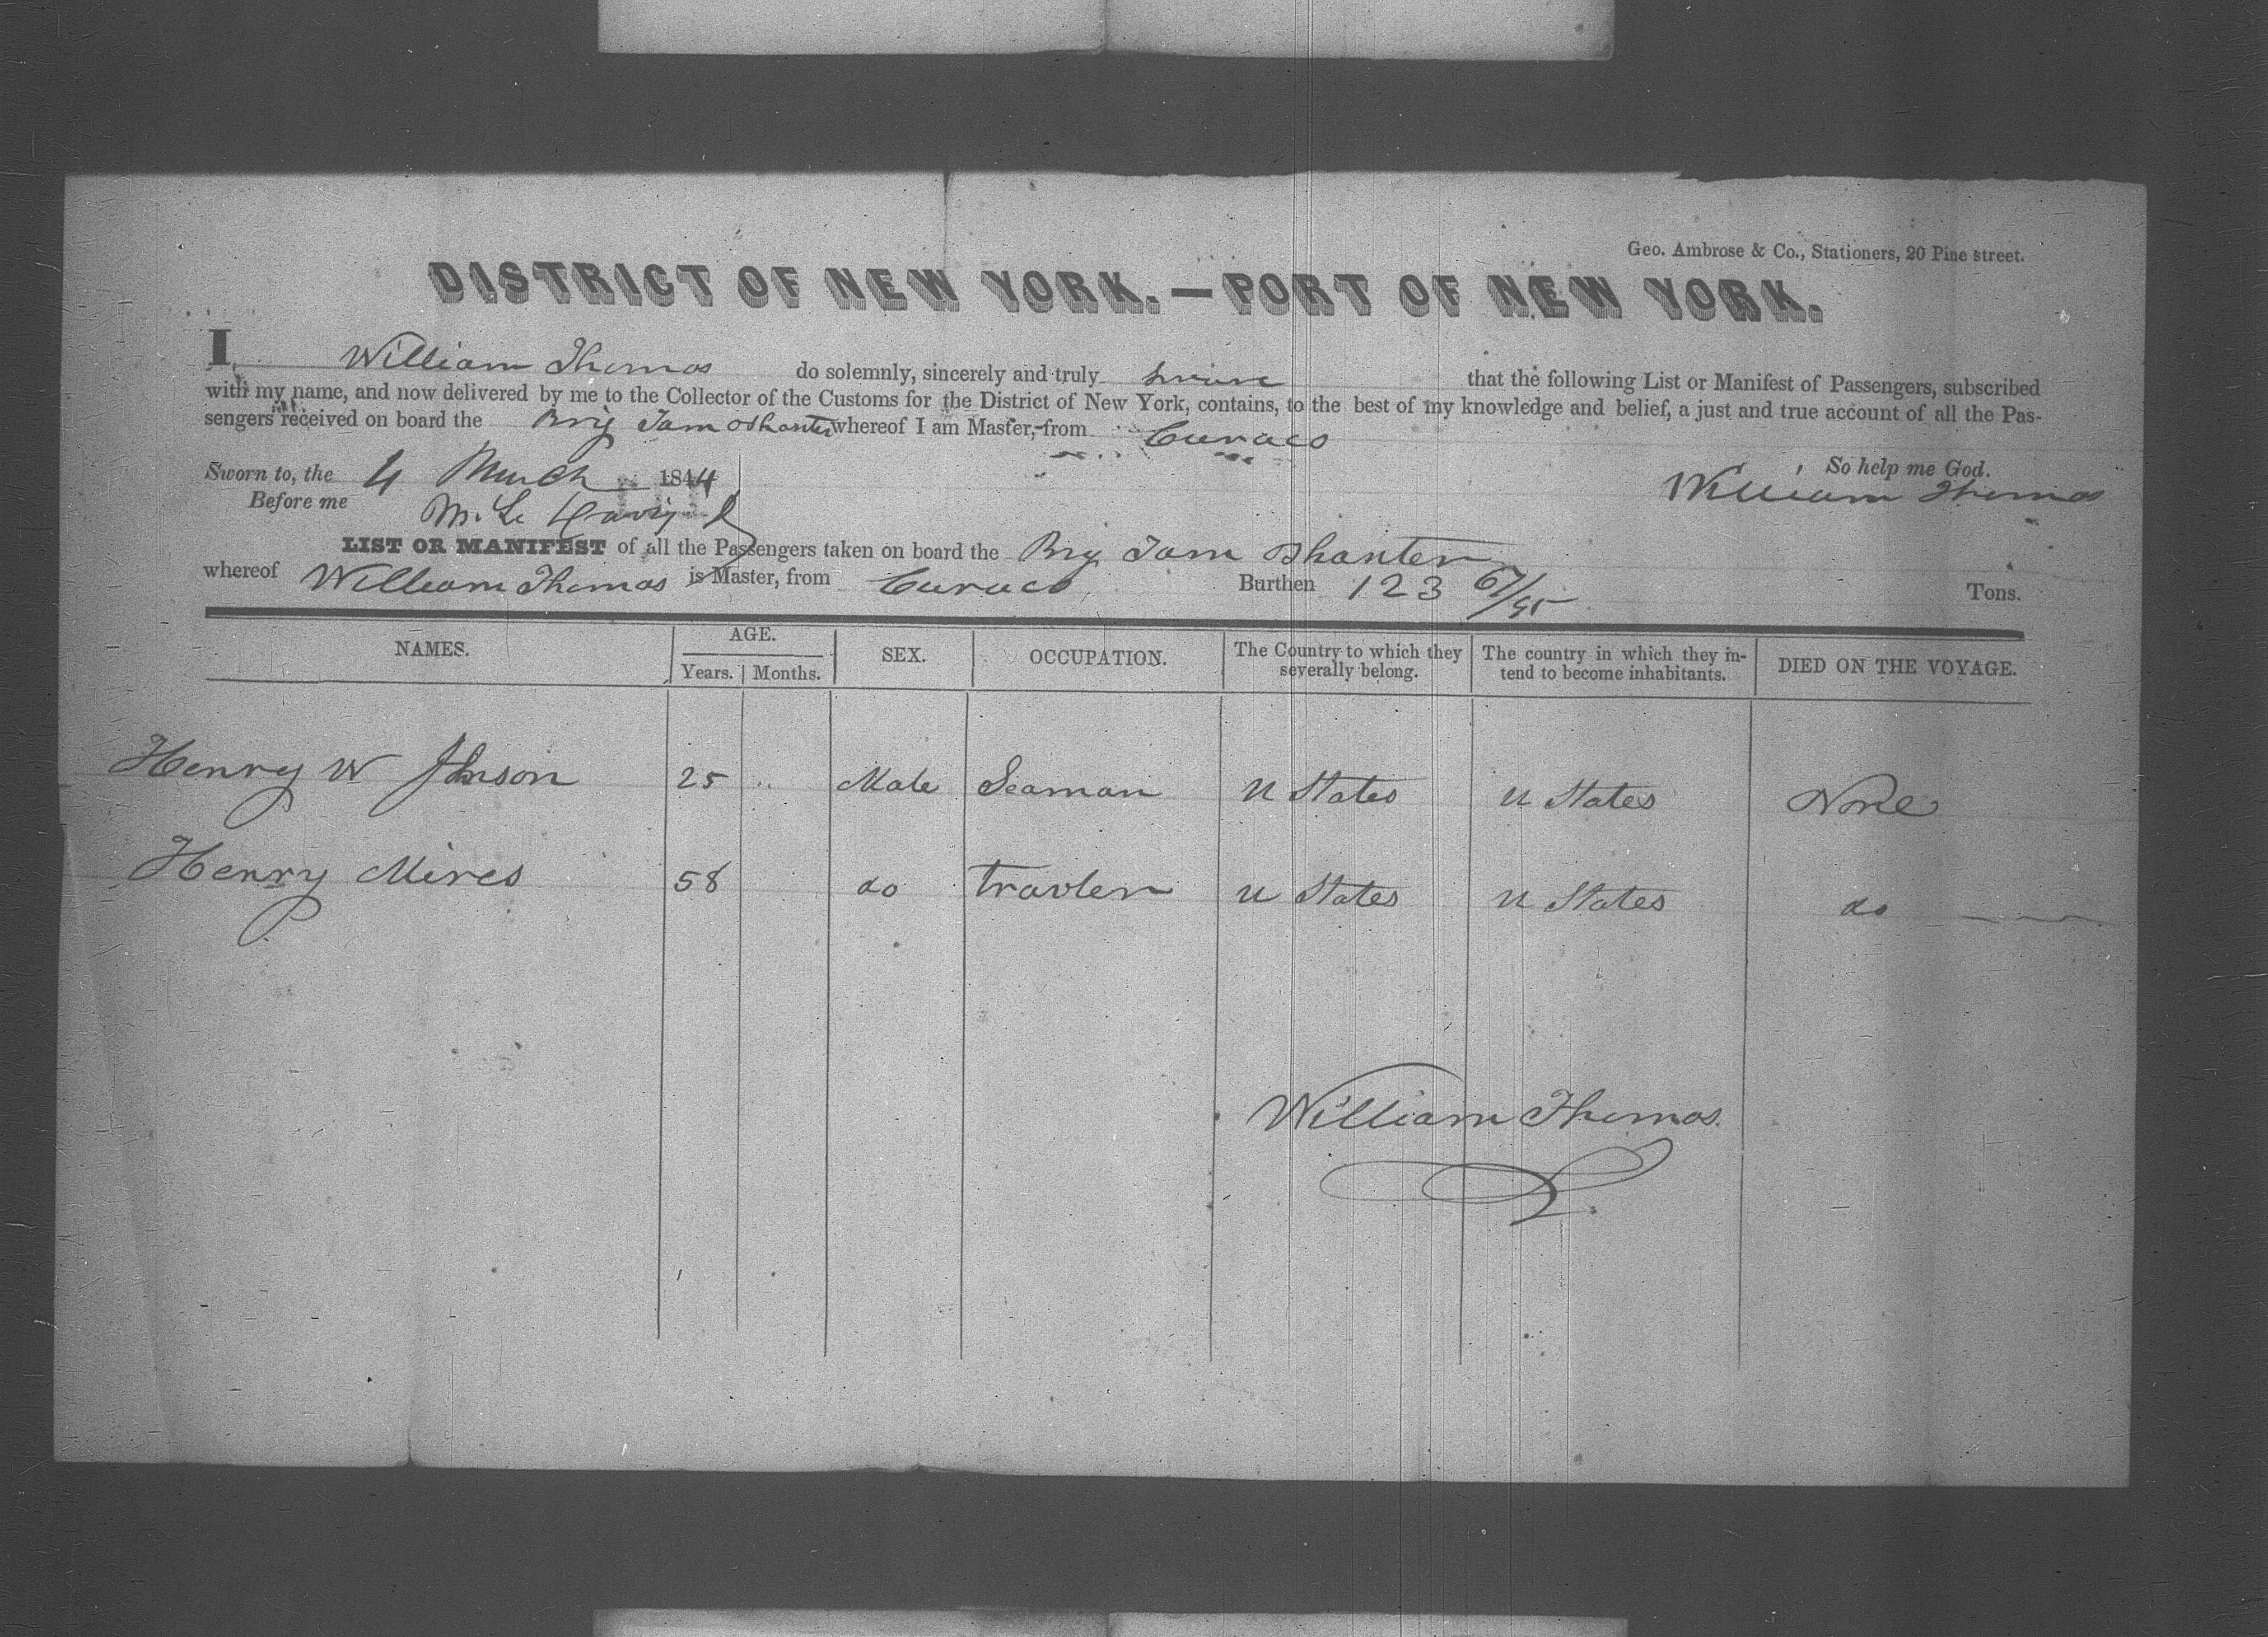 Geo. Ambrose & Co., Stationers, 20 Pine street.
DISTRICT OF NEW YORK.—PORT OF NEW YORK.
I, William Thomas do solemnly, sincerely and truly that the following List or Manifest of Passengers, subscribed
with my name, and now delivered by me to the Collector of the Customs for the District of New York, contains, to the best of my knowledge and belief, a just and true account of all the Pas-
sengers received on board the Brig Tam oShanter whereof I am Master, from Curaco
Sworn to, the 4 March 1844 So help me God.
Before me William Thomas
LIST OR MANIFEST of all the Passengers taken on board the Brig Tam oShanter
whereof William Thomas is Master, from Curaco Burthen 123 67/95 Tons.
NAMES. AGE. Years. Months. SEX. OCCUPATION. The Country to which they severally belong. The country in which they intend to become inhabitants. DIED ON THE VOYAGE.
Henry W Jhnson 25 .. Male Seaman U States U States None
Henry Mires 58 do Travler U States U States do
William Thomas